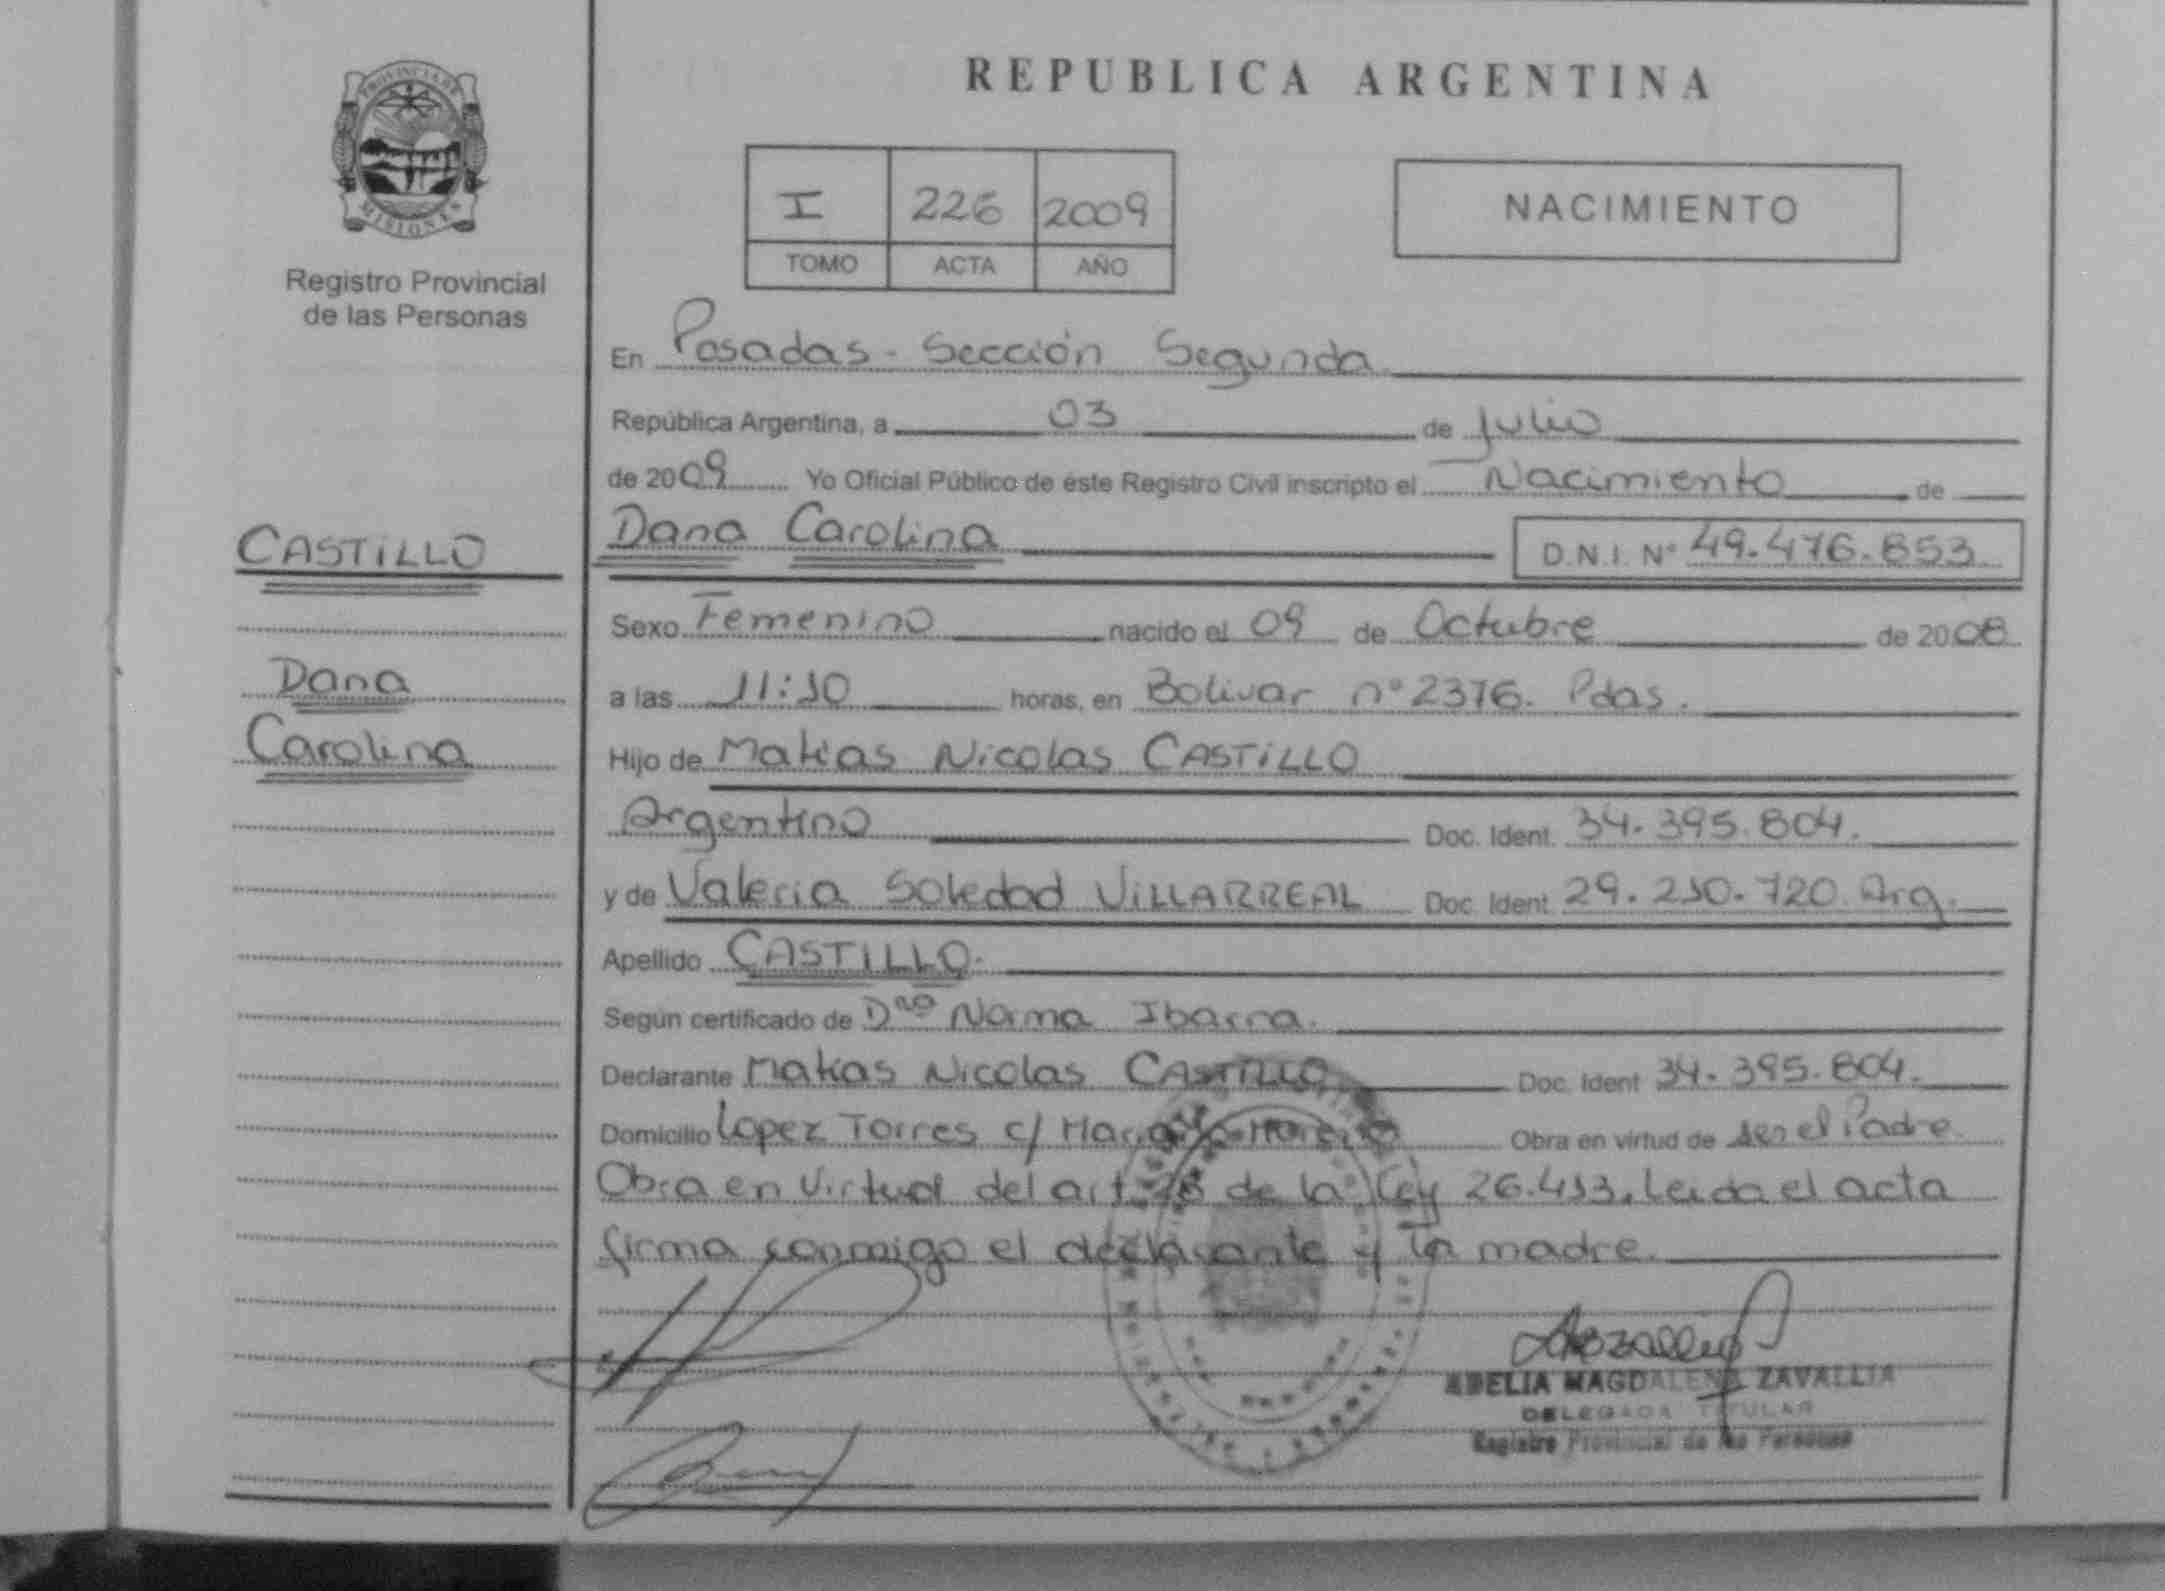 PROVINCIA DE
MISIONES
Registro Provincial
de las Personas
CASTILLO
Dana
Carolina
REPUBLICA ARGENTINA
I 226 2009
TOMO ACTA AÑO
NACIMIENTO
En Posadas - Sección Segunda
República Argentina, a 03 de Julio
de 2009 Yo Oficial Público de éste Registro Civil inscripto el Nacimiento de
Dana Carolina D.N.I. Nº 49.476.853
Sexo Femenino nacido el 09 de Octubre de 2008
a las 11:10 horas, en Bolivar nº 2376. Pdas.
Hijo de Matias Nicolas CASTILLO
Argentino Doc. Ident. 34.395.804.
y de Valeria Soledad VILLARREAL Doc. Ident 29.210.720. Arg.
Apellido CASTILLO.
Según certificado de Dra Norma Ibarra.
Declarante Matias Nicolas CASTILLO Doc. Ident 34.395.804.
Domicilio Lopez Torres c/ Mariano Moreno Obra en virtud de ser el Padre.
Obra en virtud del art. de la Ley 26.413. Leida el acta
firma conmigo el declarante y la madre.
ABELIA MAGDALENA ZAVALLIA
DELEGADA TITULAR
Registro Provincial de las Personas